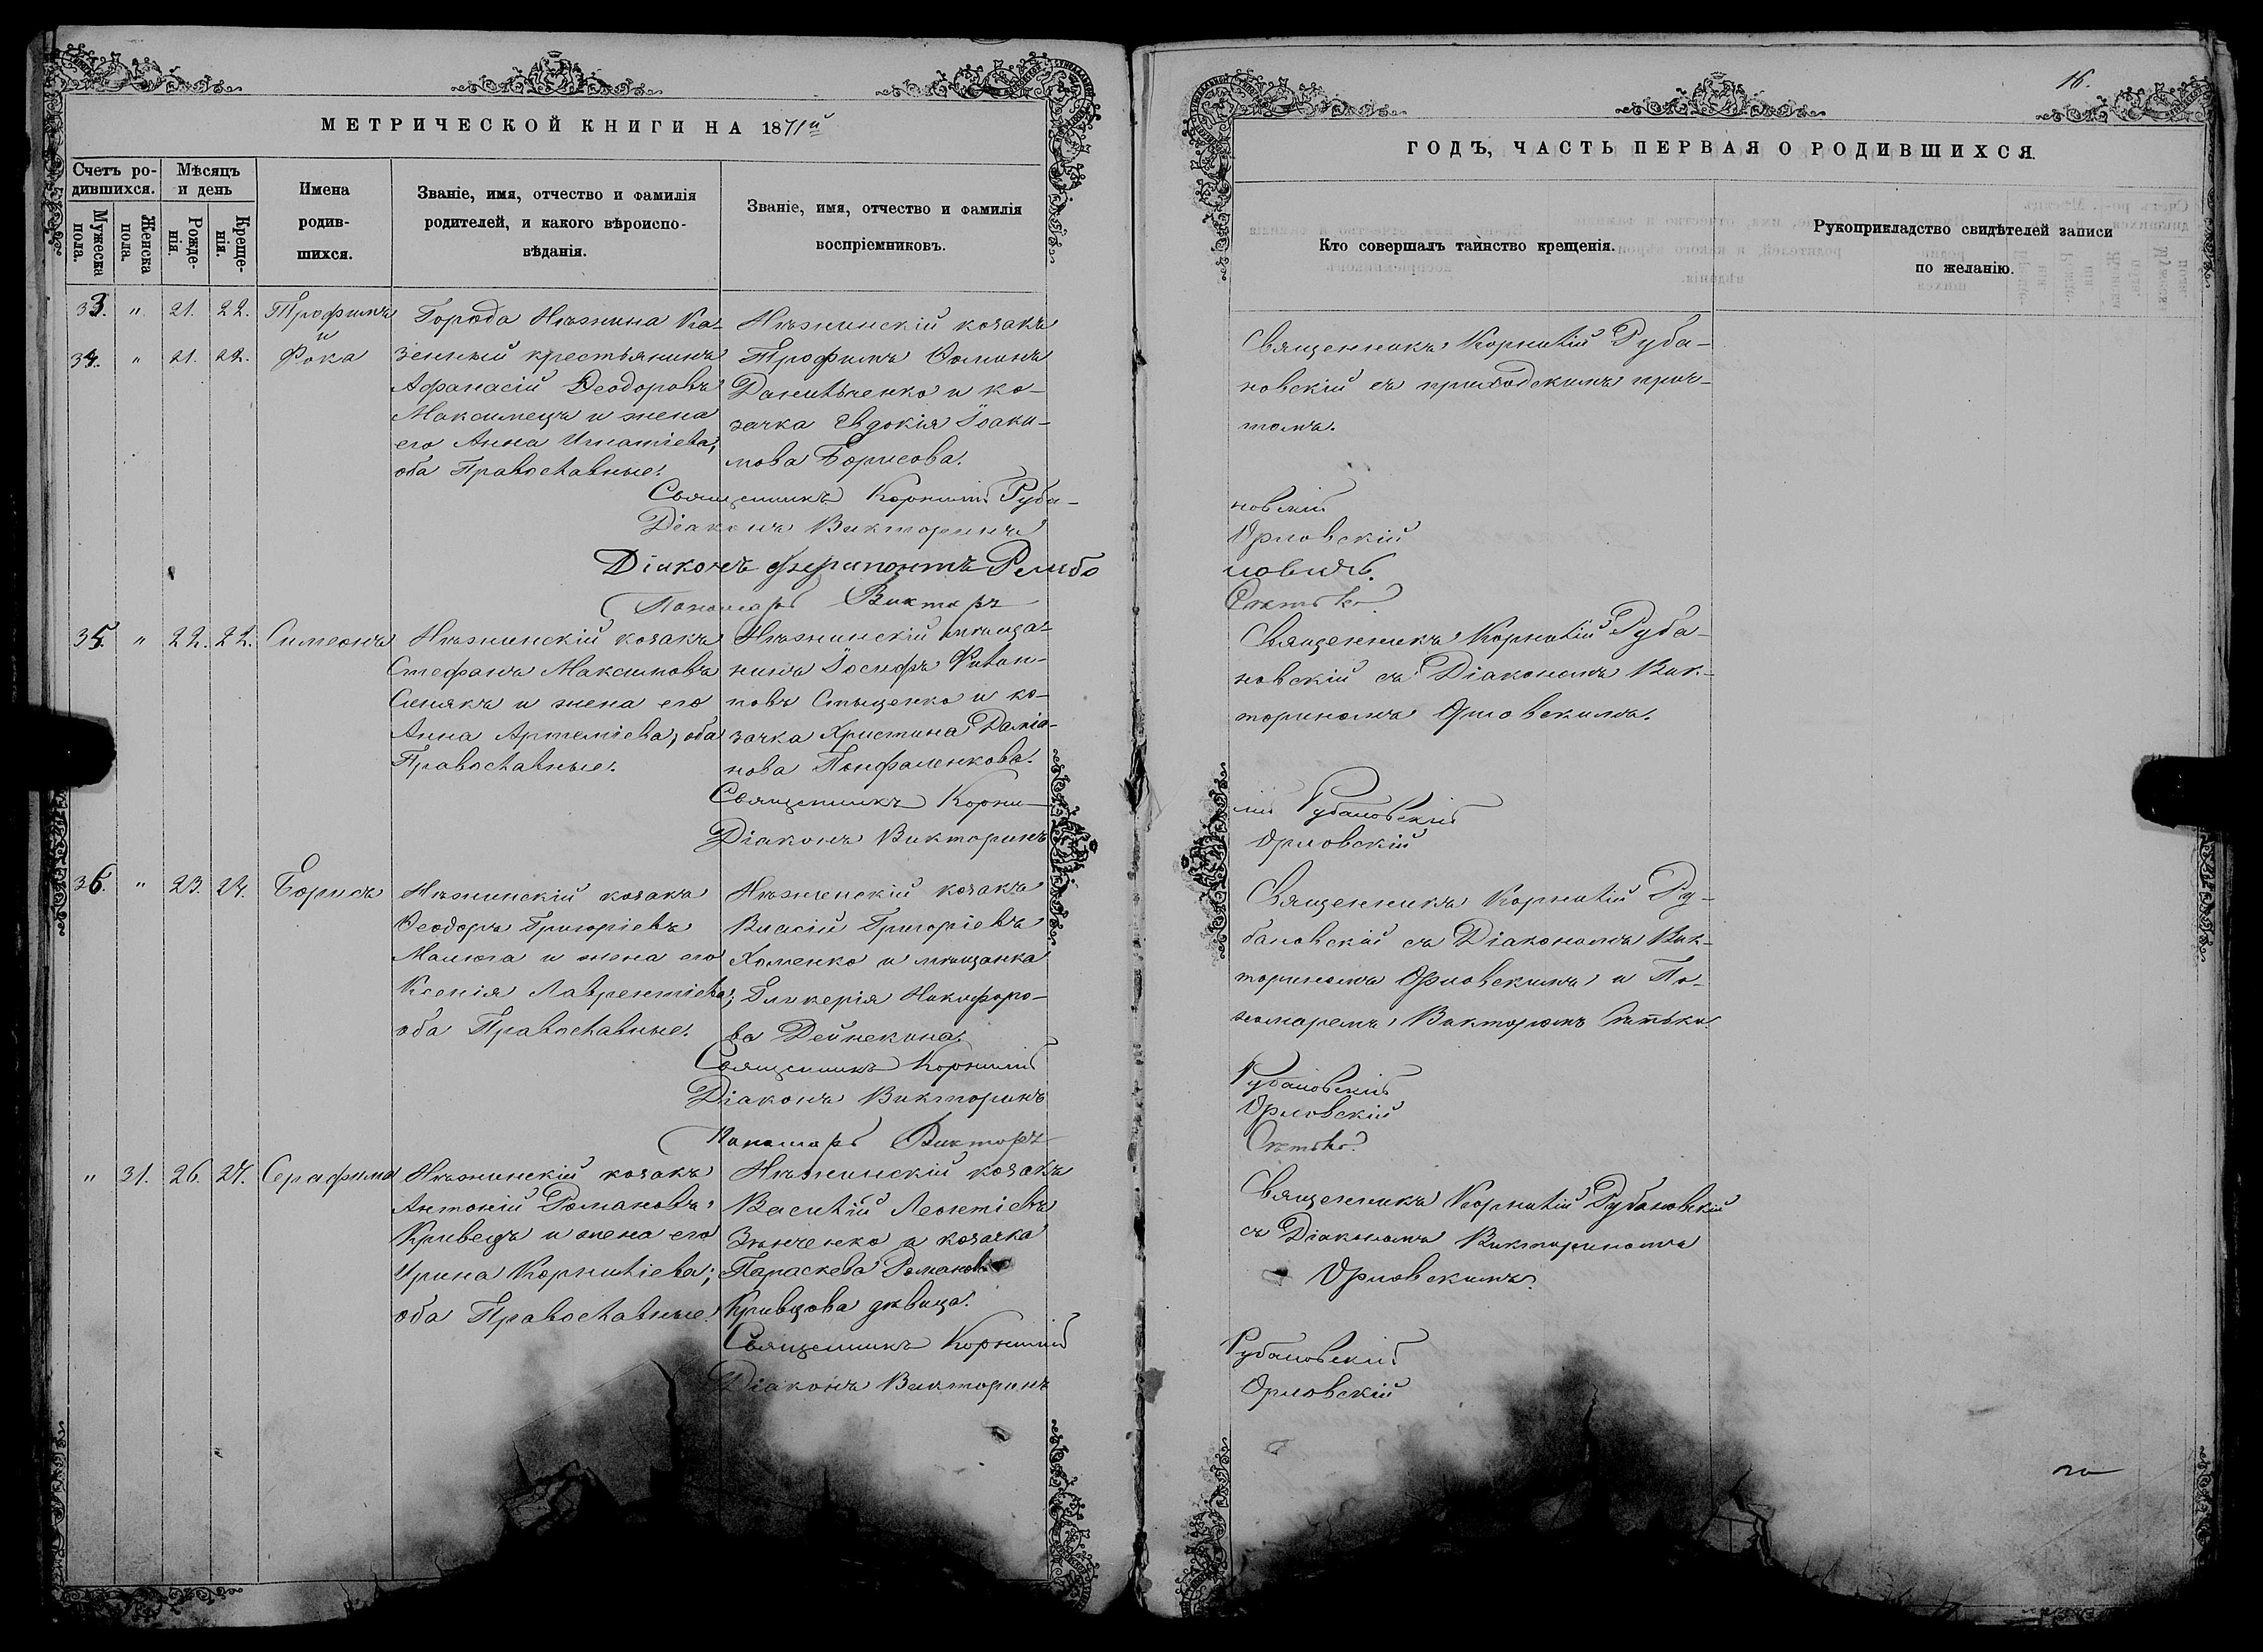 МЕТРИЧЕСКОЙ КНИГИ НА 1871й
Счетъ ро-
дившихся.
Мѣсяцъ
и день
Мужеска
пола.
Женска
пола.
Рожде-
нія.
Креще-
нія.
Имена
родив-
шихся.
Званіе, имя, отчество и фамилія
родителей, и какого вѣроиспо-
вѣданія.
Званіе, имя, отчество и фамилія
воспріемниковъ.
33. " 21. 22. Трофимъ
и
34. " 21. 22. Фока
Города Нѣжина Ка-
зенный крестьянинъ
Афанасій Ѳеодоровъ
Максимецъ и жена
его Анна Игнатіева,
оба Православные.
Нѣжинскій козакъ
Трофимъ Ѳоминъ
Данильченко и ко-
зачка Евдокія Іоаки-
мова Борисова.
Священникъ Корнилій Руба-
Діаконъ Викторинъ
Діаконъ Ферапонтъ
Пономарь Викторъ
35. " 22. 22. Симеонъ
Нѣжинскій козакъ
Стефанъ Максимовъ
Синякъ и жена его
Анна Артеміева, оба
Православные.
Нѣжинскій мѣща-
нинъ Іосифъ Филип-
повъ и ко-
зачка Христина Даміа-
нова
Священникъ Корни-
Діаконъ Викторинъ
36. " 23. 24. Борисъ
Нѣжинскій козакъ
Ѳеодоръ Григоріевъ
Малюга и жена его
Ксенія Лаврентіева;
оба Православные.
Нѣжинскій козакъ
Власій Григоріевъ
Хоменко и мѣщанка
Гликерія Никифоро-
ва Дейнекина.
Священникъ Корнилій
Діаконъ Викторинъ
Пономарь Викторъ
" 31. 26. 27. Серафима
Нѣжинскій козакъ
Антоній Романовъ
Кривецъ и жена его
Ирина Корниліева;
оба Православные.
Нѣжинскій козакъ
Василій Леонтіевъ
Зѣнченко и козачка
Параскева Романова
Кривцова дѣвица.
Священникъ Корнилій
Діаконъ Викторинъ
16.
ГОДЪ, ЧАСТЬ ПЕРВАЯ О РОДИВШИХСЯ.
Кто совершалъ таинство крещенія.
Рукоприкладство свидѣтелей записи
по желанію.
Священникъ Корнилій Руба-
новскій съ приходскимъ прич-
томъ.
новскій
Орловскій
новичъ.
Священникъ Корнилій Руба-
новскій съ Діакономъ Вик-
ториномъ Орловскимъ.
лій Рубановскій
Орловскій
Священникъ Корнилій Ру-
бановскій съ Діакономъ Вик-
ториномъ Орловскимъ и По-
номаремъ Викторомъ
Рубановскій
Орловскій
Священникъ Корнилій Рубановскій
съ Діакономъ Викториномъ
Орловскимъ.
Рубановскій
Орловскій